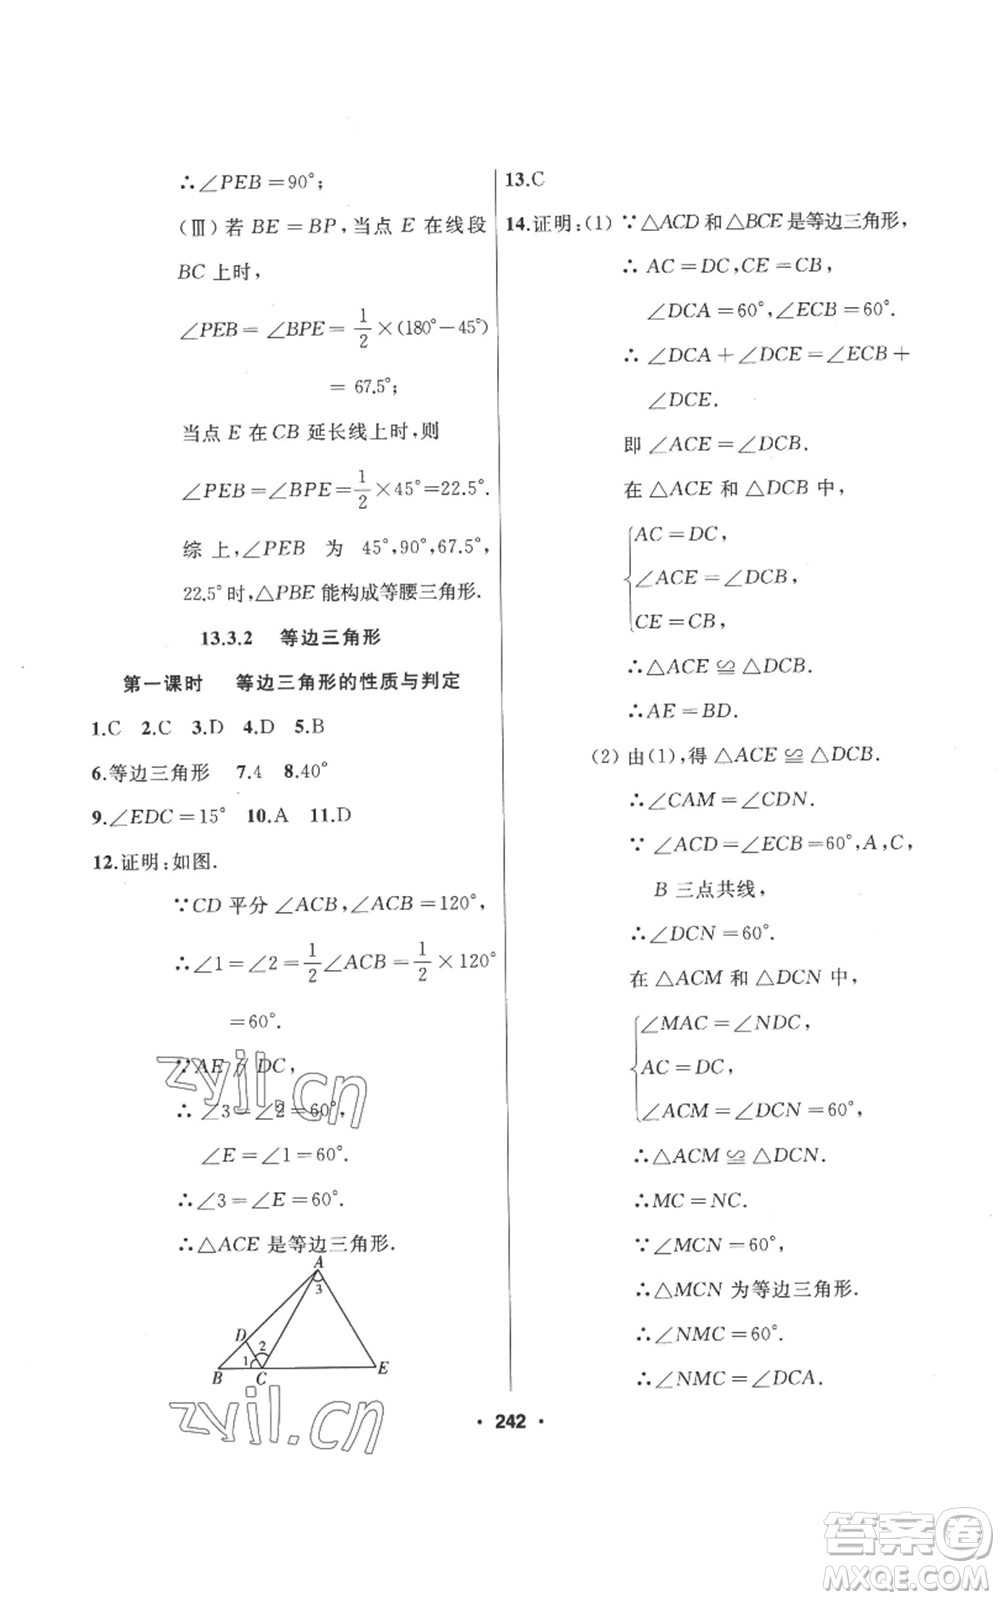 ∴∠PEB=90°;
(Ⅲ)若 BE=BP,当点 E 在线段
BC 上时,
∠PEB=∠BPE=1/2×(180°-45°)
=67.5°;
当点 E 在 CB 延长线上时,则
∠PEB=∠BPE=1/2×45°=22.5°.
综上,∠PEB 为 45°,90°,67.5°,
22.5°时,△PBE 能构成等腰三角形.
13.3.2 等边三角形
第一课时 等边三角形的性质与判定
1.C 2.C 3.D 4.D 5.B
6.等边三角形 7.4 8.40°
9.∠EDC=15° 10.A 11.D
12.证明:如图.
∵CD 平分∠ACB,∠ACB=120°,
∴∠1=∠2=1/2∠ACB=1/2×120°
=60°.
∵AE∥DC,
∴∠3=∠2=60°,
∠E=∠1=60°.
∴∠3=∠E=60°.
∴△ACE 是等边三角形.
A
3
D
2
1
B C E
13.C
14.证明:(1)∵△ACD 和△BCE 是等边三角形,
∴AC=DC,CE=CB,
∠DCA=60°,∠ECB=60°.
∴∠DCA+∠DCE=∠ECB+
∠DCE.
即∠ACE=∠DCB.
在△ACE 和△DCB 中,
AC=DC,
∠ACE=∠DCB,
CE=CB,
∴△ACE≌△DCB.
∴AE=BD.
(2)由(1),得△ACE≌△DCB.
∴∠CAM=∠CDN.
∵∠ACD=∠ECB=60°,A,C,
B 三点共线,
∴∠DCN=60°.
在△ACM 和△DCN 中,
∠MAC=∠NDC,
AC=DC,
∠ACM=∠DCN=60°,
∴△ACM≌△DCN.
∴MC=NC.
∵∠MCN=60°,
∴△MCN 为等边三角形.
∴∠NMC=60°.
∴∠NMC=∠DCA.
· 242 ·
zyjl.cn
zyjl.cn
答案卷
MXQE.COM